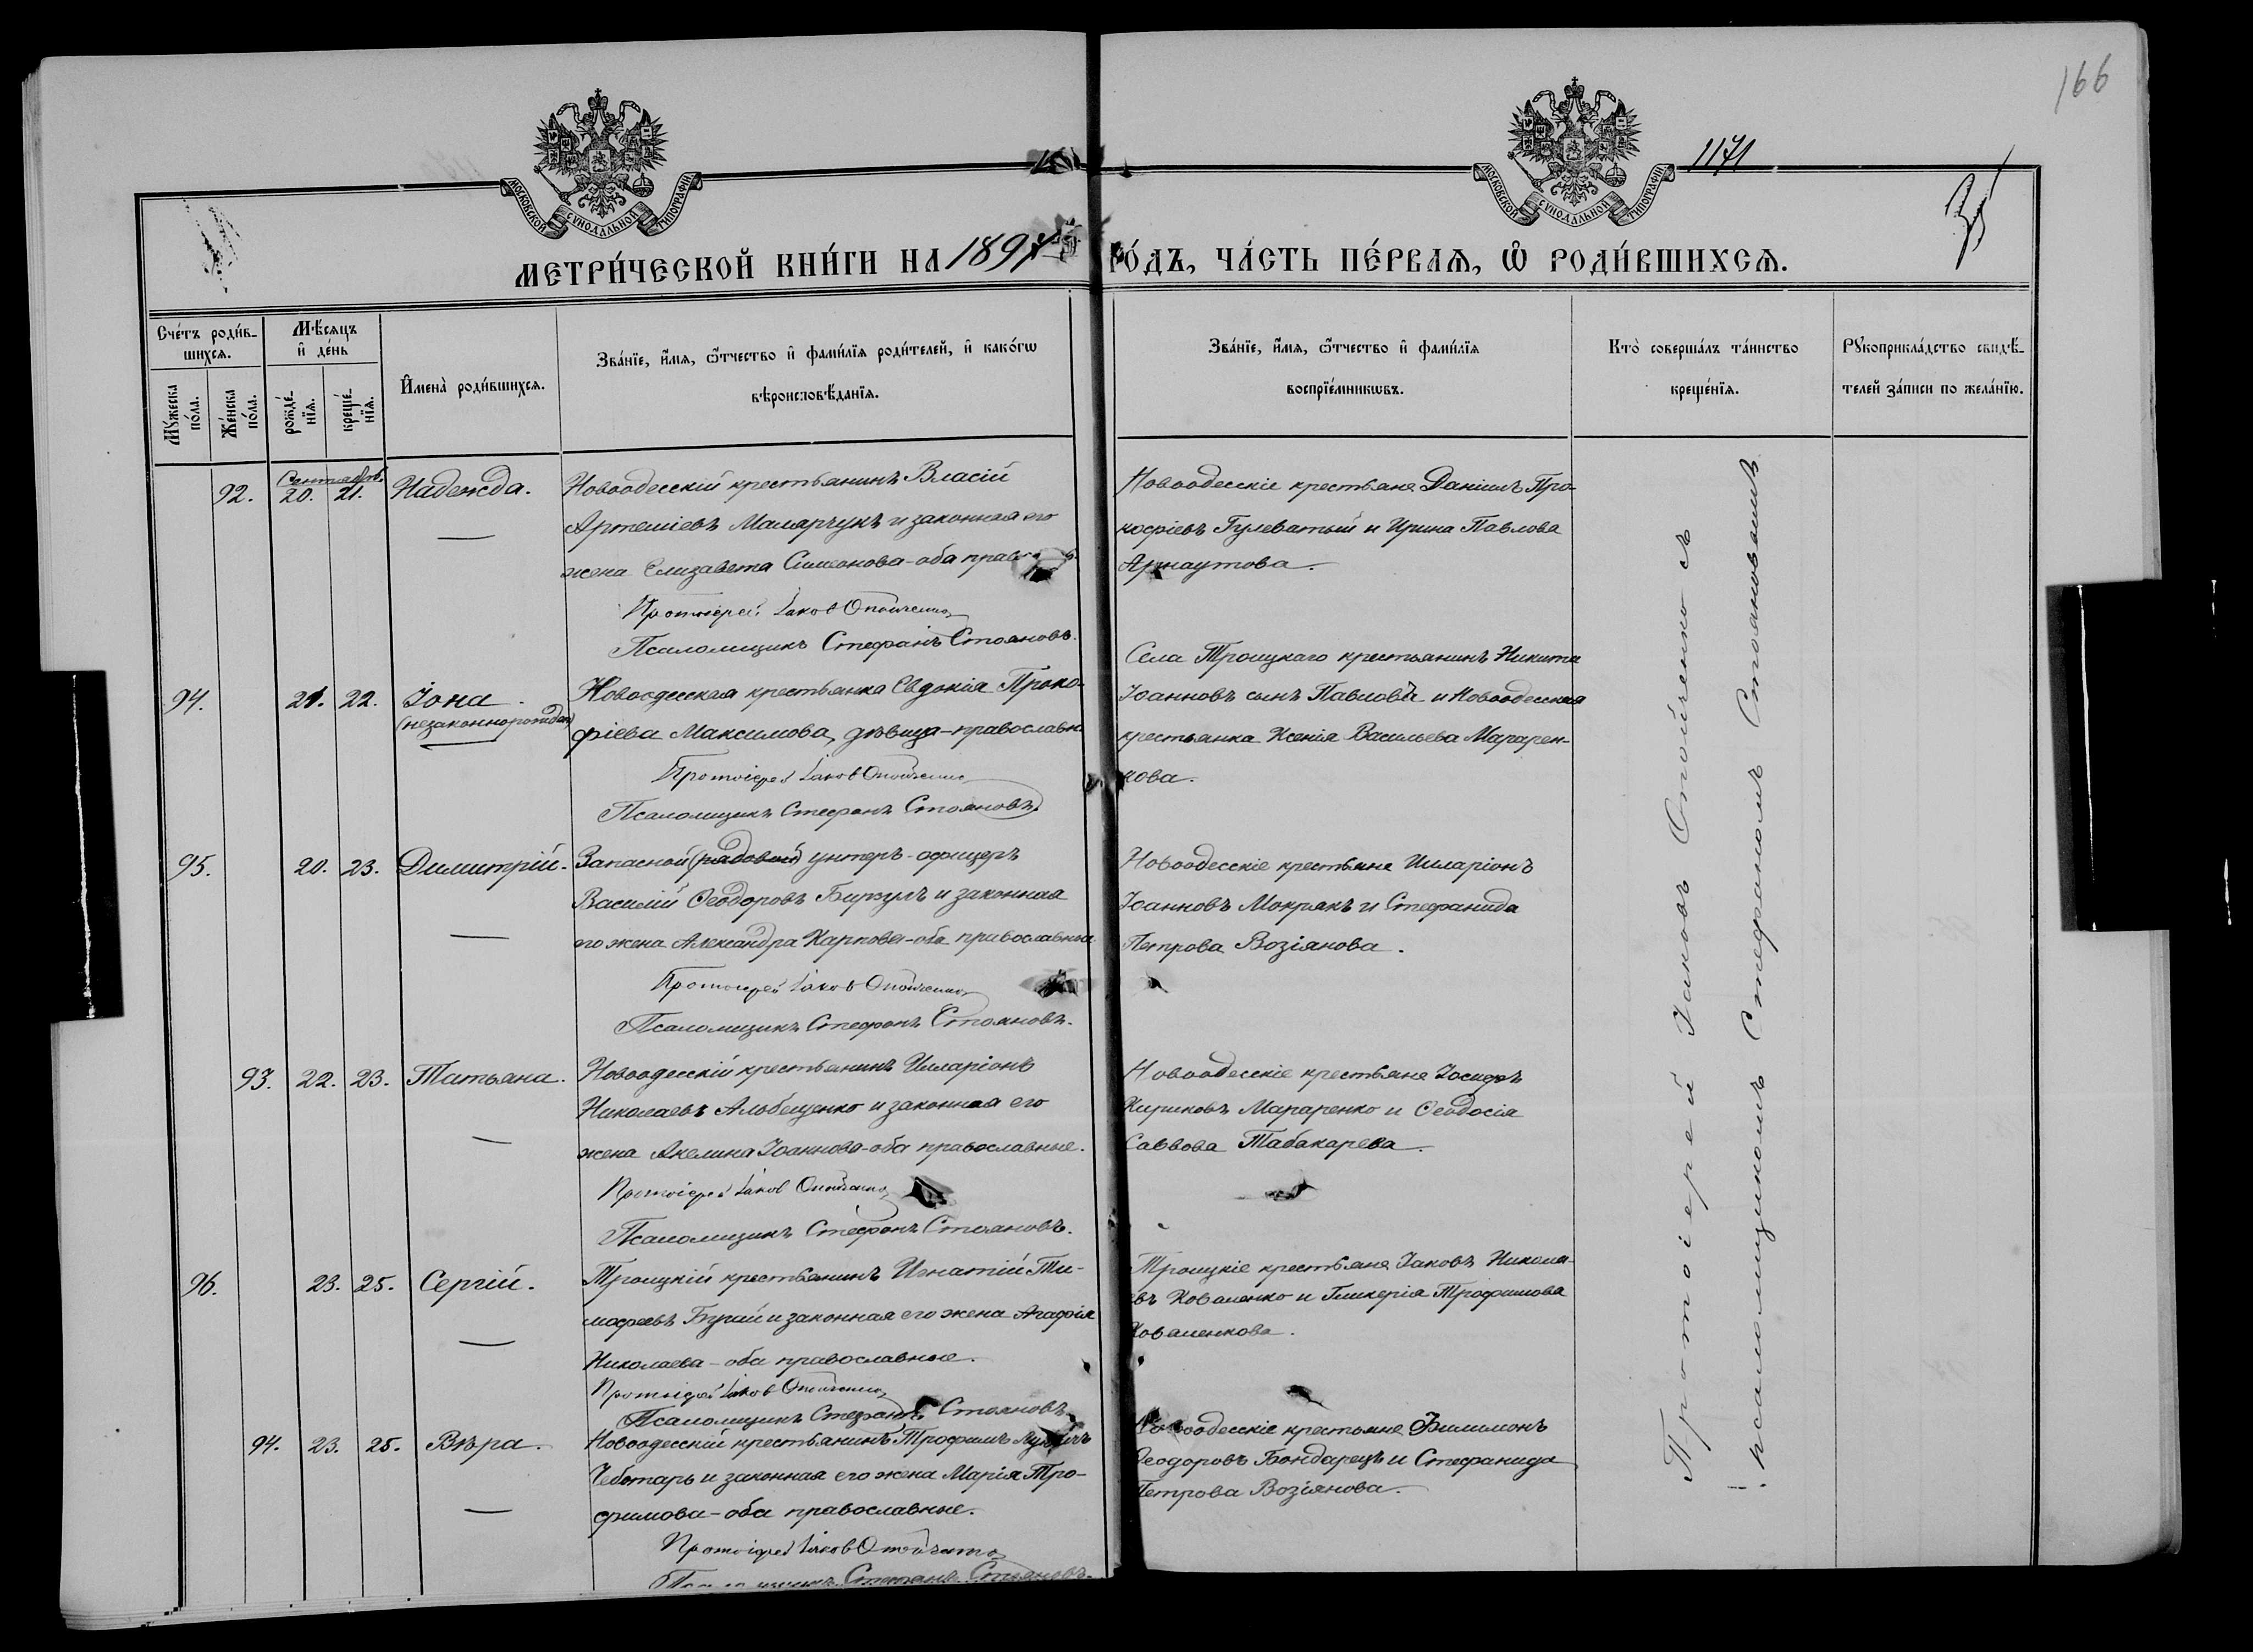 166
1171
35
МОСКОВСКОЙ СѴНОДАЛЬНОЙ ТИПОГРАФІИ
МОСКОВСКОЙ СѴНОДАЛЬНОЙ ТИПОГРАФІИ
МЕТРИ́ЧЕСКОЙ КНИ́ГИ НА 1897 ГО́ДЪ, ЧА́СТЬ ПЕ́РВАѦ, Ѡ҆ РОДИ́ВШИХСѦ.
Сче́тъ роди́вшихсѧ.
Мꙋ́жеска по́ла.
Же́нска по́ла.
Мѣ́сѧцъ и҆ де́нь
рожде́нїѧ.
креще́нїѧ.
И҆мена̀ роди́вшихсѧ.
Зва́нїе, и҆́мѧ, ѻ҆́тчество и҆ фами́лїѧ роди́телей, и҆ како́гѡ
вѣроисповѣ́данїѧ.
Зва́нїе, и҆́мѧ, ѻ҆́тчество и҆ фами́лїѧ
воспрїе́мникѡвъ.
Кто̀ соверша́лъ та́инство
креще́нїѧ.
Рꙋкоприкла́дство свидѣ́-
телей за́писи по жела́нїю.
Сентябрь.
92. 20. 21. Надежда.
Новоодесскій крестьянинъ Власій
Артеміевъ Малярчукъ и законная его
жена Елизавета Симеонова - оба прав
Протоіерей Іаковъ Опойченко
Псаломщикъ Стефанъ Стояновъ.
Новоодесскіе крестьяне Даніилъ Про-
кофіевъ Гулеватый и Ирина Павлова
Арнаутова.
94. 21. 22. Іона.
(незаконнорожден)
Новоодесская крестьянка Евдокія Проко-
фіева Максимова, дѣвица - православн
Протоіерей Іаковъ Опойченко
Псаломщикъ Стефанъ Стояновъ
Села Троицкаго крестьянинъ Никита
Іоанновъ сынъ Павловъ и Новоодесская
крестьянка Ксенія Васильева Мараренкова.
95. 20. 23. Димитрій.
Запасной (рядовой) унтеръ-офицеръ
Василій Ѳеодоровъ Бирзулъ и законная
его жена Александра Карпова - оба православные
Протоіерей Іаковъ Опойченко
Псаломщикъ Стефанъ Стояновъ.
Новоодесскіе крестьяне Иларіонъ
Іоанновъ Мокрякъ и Стефанида
Петрова Возіянова.
93. 22. 23. Татьяна.
Новоодесскій крестьянинъ Иларіонъ
Николаевъ Альбещенко и законная его
жена Акелина Іоаннова - оба православные.
Протоіерей Іаковъ Опойченко
Псаломщикъ Стефанъ Стояновъ.
Новоодесскіе крестьяне Іосифъ
Кириковъ Мараренко и Ѳеодосія
Саввова Табакарева.
96. 23. 25. Сергій.
Троицкій крестьянинъ Игнатій Ти-
мофеевъ Бугай и законная его жена Агафія
Николаева - оба православные.
Протоіерей Іаковъ Опойченко
Псаломщикъ Стефанъ Стояновъ
Троицкіе крестьяне Іаковъ Никола-
евъ Коваленко и Гликерія Трофимова
Коваленкова.
94. 23. 25. Вѣра.
Новоодесскій крестьянинъ Трофимъ
Чеботарь и законная его жена Марія Тро-
фимова - оба православные.
Протоіерей Іаковъ Опойченко
Псаломщикъ Стефанъ Стояновъ.
Новоодесскіе крестьяне Филимонъ
Ѳеодоровъ Бондарецъ и Стефанида
Петрова Возіянова.
Протоіерей Іаковъ Опойченко съ
псаломщикомъ Стефаномъ Стояновымъ